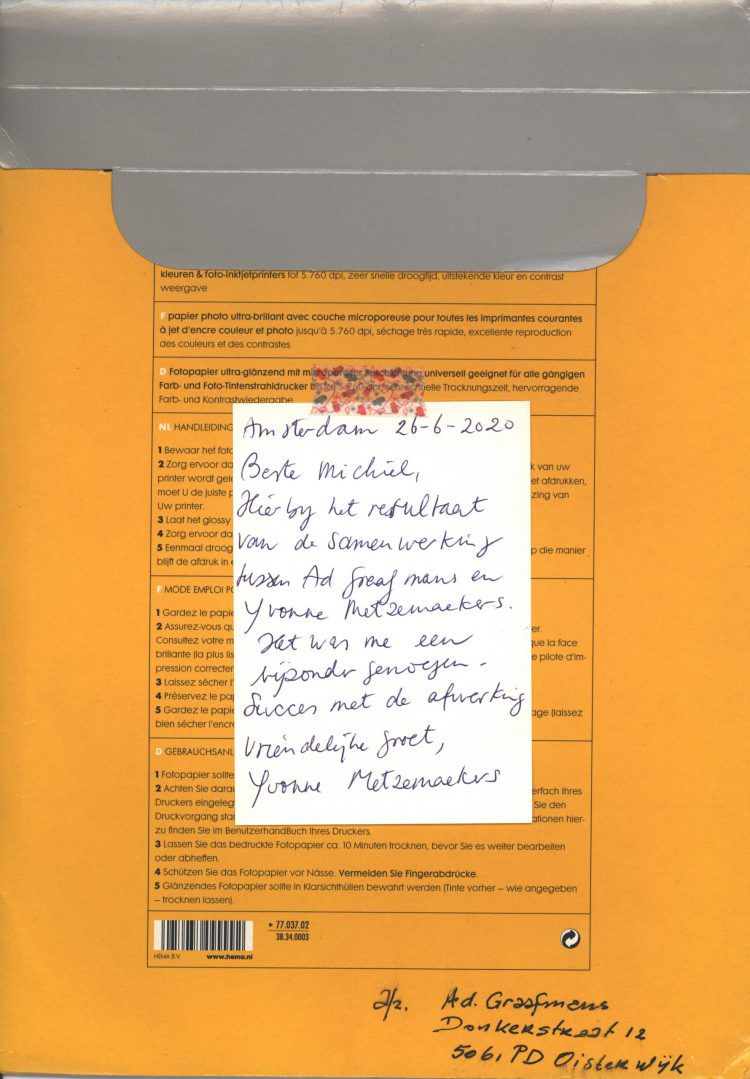 kleuren & foto-inktjetprinters tot 5.760 dpi, zeer snelle droogtijd, uitstekende kleur en contrast
weergave
F papier photo ultra-brillant avec couche microporeuse pour toutes les imprimantes courantes
à jet d'encre couleur et photo jusqu'à 5.760 dpi, séchage très rapide, excellente reproduction
des couleurs et des contrastes
D Fotopapier ultra-glänzend mit universell geeignet für alle gängigen
Farb- und Foto-Tintenstrahldrucker bis zu 5.760 dpi, sehr schnelle Trocknungszeit, hervorragende
Farb- und Kontrastwiedergabe
Amsterdam 26-6-2020
Beste Michiel,
Hierby het resultaat
van de samenwerking
tussen Ad Greafmans en
Yvonne Metzemaekers.
Het was me een
bijzonder genoegen.
Succes met de afwerking
Vriendelijke groet,
Yvonne Metzemaekers
NL HANDLEIDING
1 Bewaar het foto
2 Zorg ervoor da k van uw
printer wordt gele et afdrukken,
moet U de juiste p zing van
Uw printer.
3 Laat het glossy
4 Zorg ervoor da
5 Eenmaal droog p die manier
blijft de afdruk in
F MODE EMPLOI PO
1 Gardez le papie
2 Assurez-vous qu er.
Consultez votre m que la face
brillante (la plus lis e pilote d'im-
pression correcter
3 Laissez sécher l'
4 Préservez le pap
5 Gardez le papie age (laissez
bien sécher l'encre
D GEBRAUCHSANL
1 Fotopapier sollte
2 Achten Sie darau erfach Ihres
Druckers eingelegt Sie den
Druckvorgang star ationen hier-
zu finden Sie im BenutzerhandBuch Ihres Druckers.
3 Lassen Sie das bedruckte Fotopapier ca. 10 Minuten trocknen, bevor Sie es weiter bearbeiten
oder abheften.
4 Schützen Sie das Fotopapier vor Nässe. Vermeiden Sie Fingerabdrücke.
5 Glänzendes Fotopapier sollte in Klarsichthüllen bewahrt werden (Tinte vorher – wie angegeben
– trocknen lassen).
77.037.02
38.34.0003
HEMA B.V. www.hema.nl
Ad. Graafmans
Donkerstraat 12
5061 PD Oisterwijk